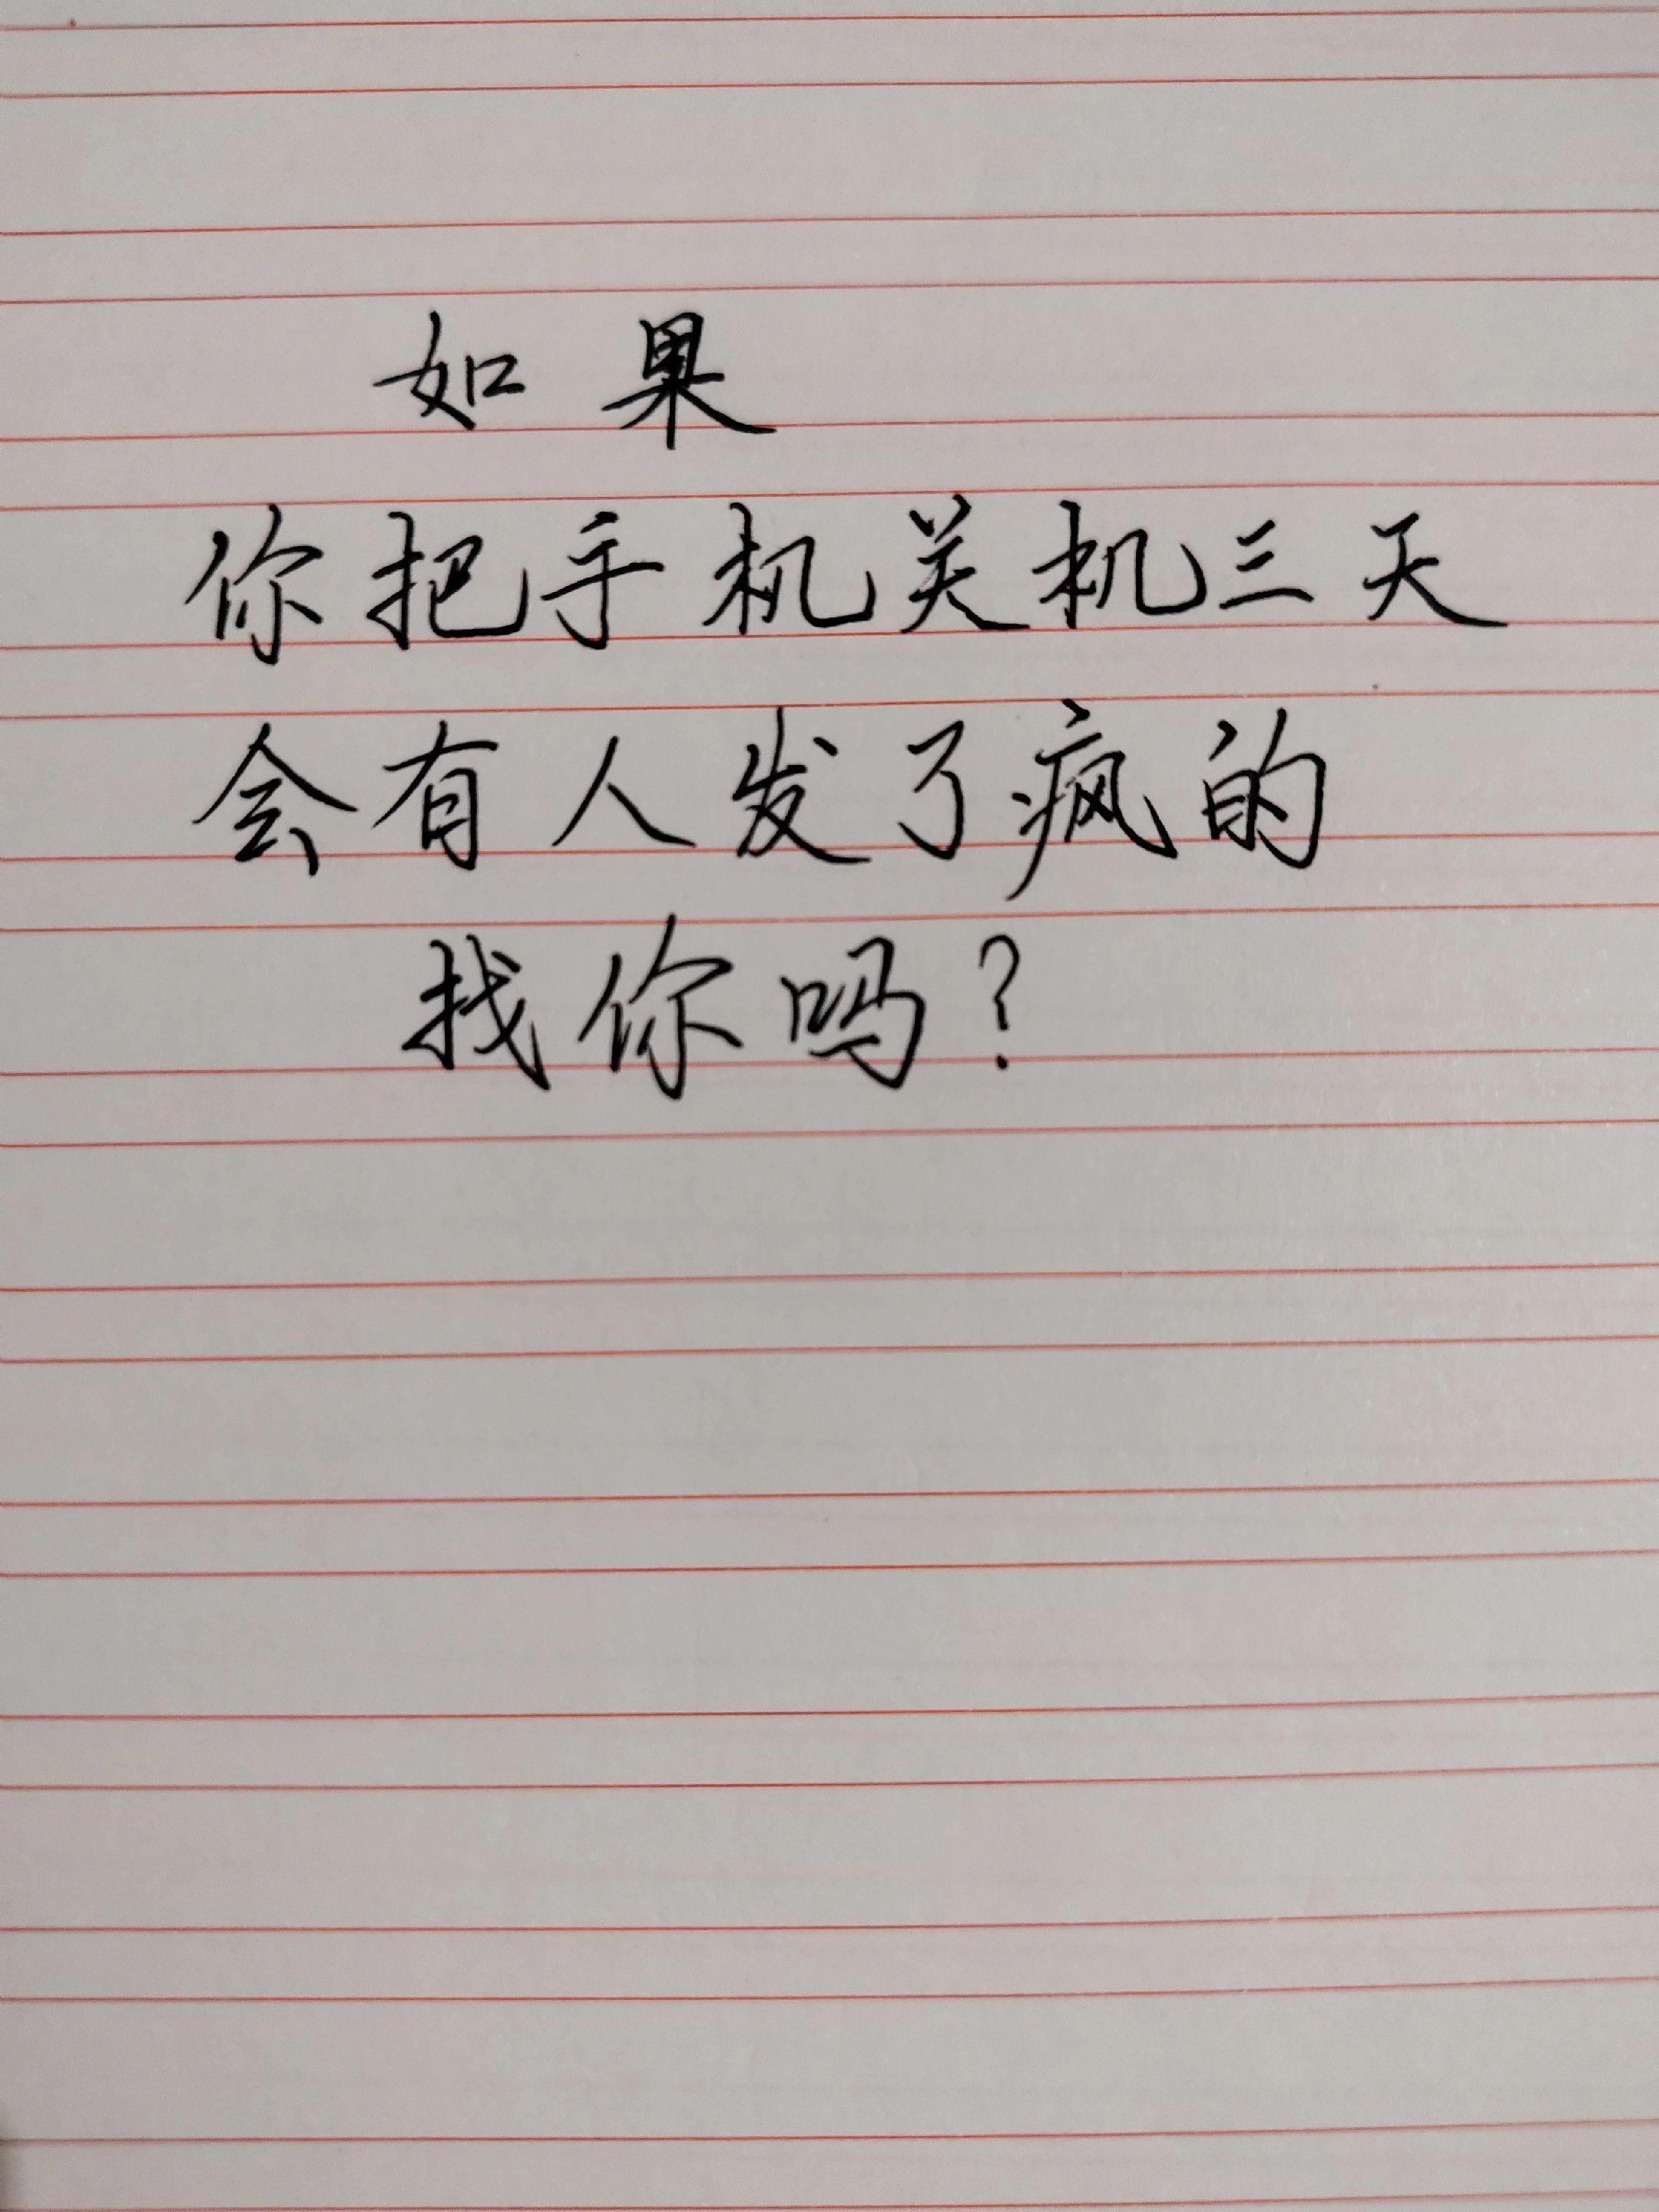 如果
你把手机关机三天
会有人发了疯的
找你吗?